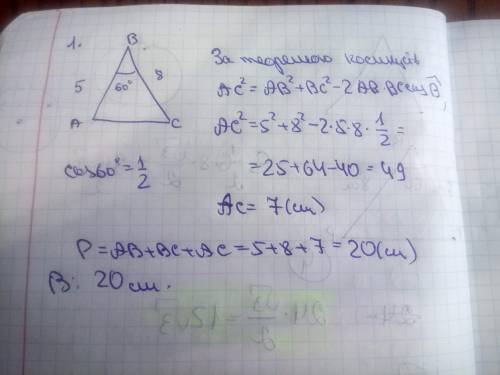 1.
B
5
8
60°
A
C
cos60°=1/2
За теоремою косинусів
AC²=AB²+BC²-2AB·BCcosB,
AC²=5²+8²-2·5·8·1/2=
=25+64-40=49
AC=7(см)
P=AB+BC+AC=5+8+7=20(см)
В: 20 см.